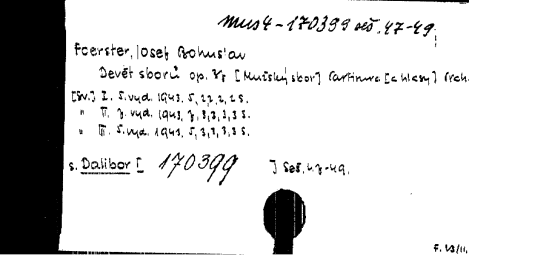 Mus4-170399 seš. 47-49.
Foerster, Josef Bohuslav
Devět sborů op. [Mužský sbor] Partitura [a hlasy] Prh.
[Sv.] I. 5. vyd. 1943. 5, 2, 2, 2, 2 S.
" II. 7. vyd. 1943, 7, 3, 3, 3, 3 S.
" III. 5. vyd. 1943. 5, 3, 3, 3, 3 S.
s. Dalibor [ 170399 ] Seš. 47-49.